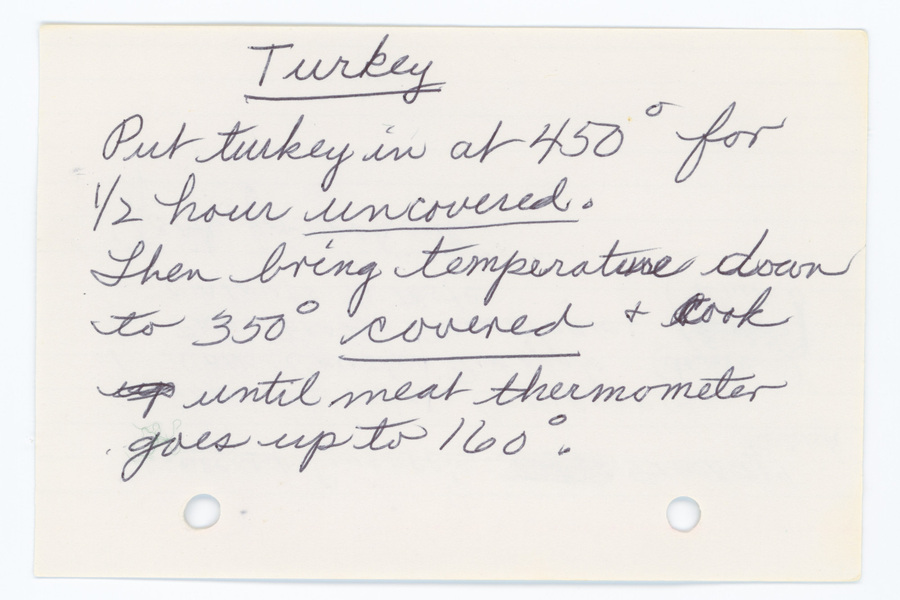 Turkey
Put turkey in at 450° for
1/2 hour uncovered.
Then bring temperature down
to 350° covered & Cook
until meat thermometer
goes up to 160°.